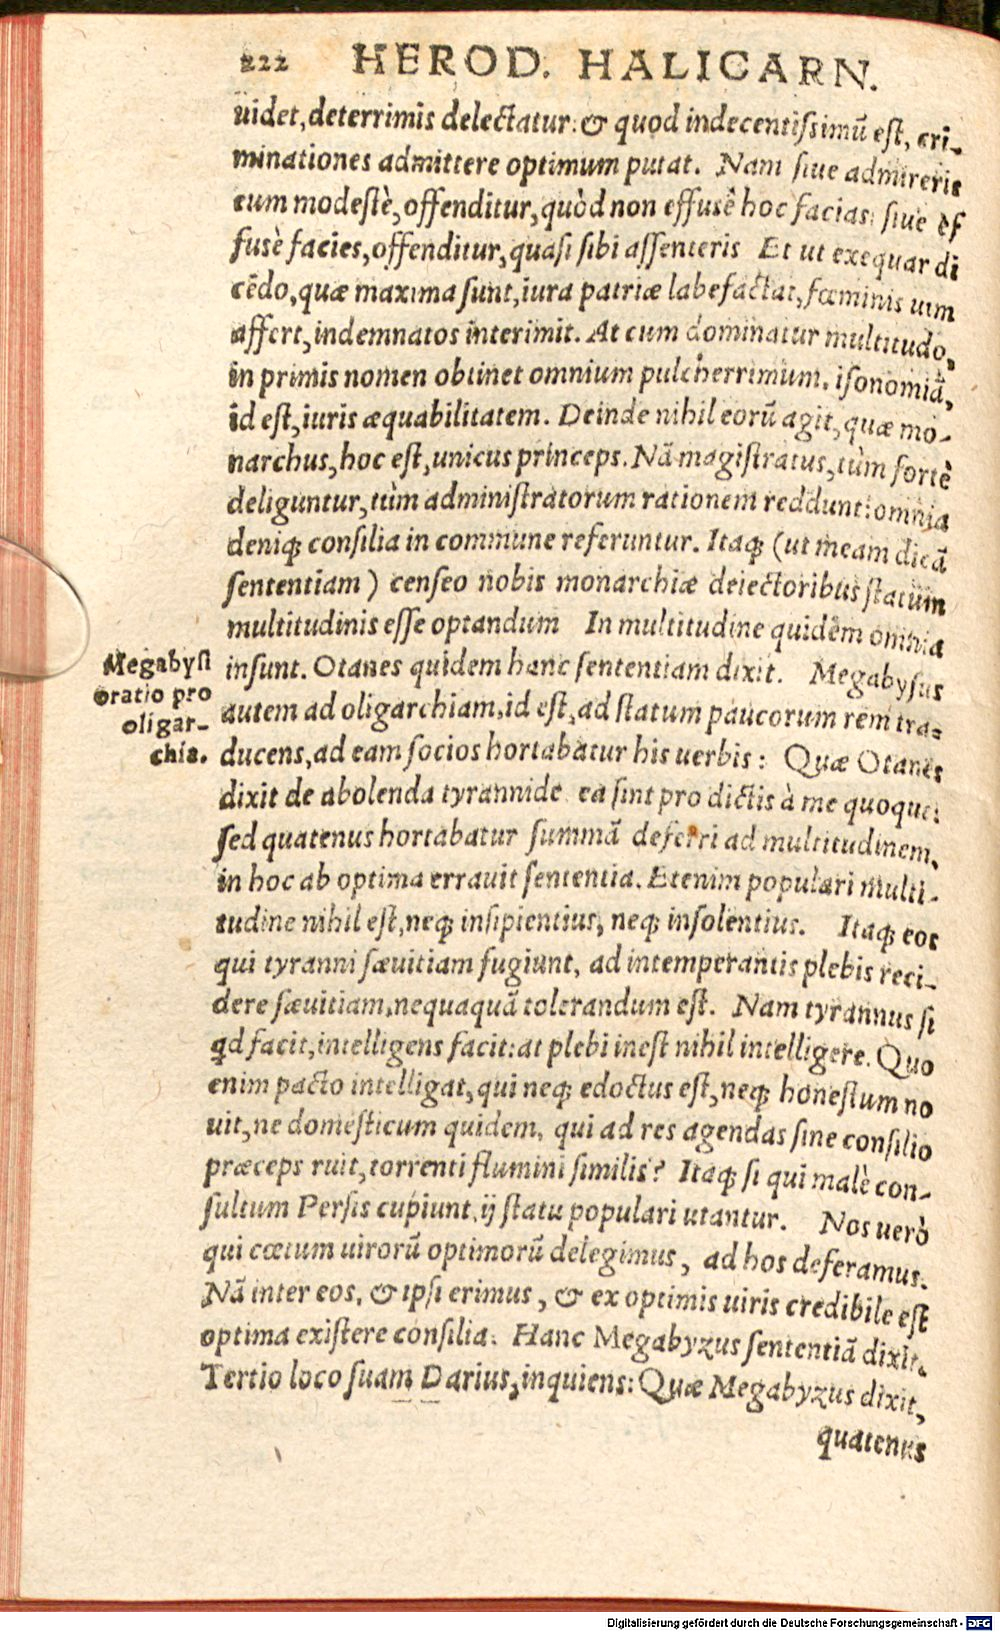 222 HEROD. HALICARN.
uidet, deterrimis delectatur: & quod indecentissimũ est, cri-
minationes admittere optimum putat. Nam siue admireris
eum modestè, offenditur, quòd non effusè hoc facias: siue ef
fusè facies, offenditur, quasi sibi assenteris Et ut exequar di
cẽdo, quæ maxima sunt, iura patriæ labefactat, fœminis uim
affert, indemnatos interimit. At cum dominatur multitudo,
in primis nomen obtinet omnium pulcherrimum, isonomiã,
id est, iuris æquabilitatem. Deinde nihil eorũ agit, quæ mo-
narchus, hoc est, unicus princeps. Nã magistratus, tùm fortè
deliguntur, tùm administratorum rationem reddunt: omnia
deniq; consilia in commune referuntur. Itaq; (ut meam dicã
sententiam) censeo nobis monarchiæ deiectoribus statum
multitudinis esse optandum In multitudine quidem omnia
insunt. Otanes quidem hanc sententiam dixit. Megabysus
autem ad oligarchiam, id est, ad statum paucorum rem tra-
ducens, ad eam socios hortabatur his uerbis: Quæ Otanes
dixit de abolenda tyrannide ea sint pro dictis à me quoque:
sed quatenus hortabatur summã deferri ad multitudinem,
in hoc ab optima errauit sententia. Etenim populari multi-
tudine nihil est, neq; insipientius, neq; insolentius. Itaq; eos
qui tyranni sæuitiam fugiunt, ad intemperantis plebis reci-
dere sæuitiam, nequaquã tolerandum est. Nam tyrannus si
qd facit, intelligens facit: at plebi inest nihil intelligere. Quo
enim pacto intelligat, qui neq; edoctus est, neq; honestum no
uit, ne domesticum quidem, qui ad res agendas sine consilio
præceps ruit, torrenti flumini similis? Itaq; si qui malè con-
sultum Persis cupiunt, ij statu populari utantur. Nos uerò
qui cœtum uirorũ optimorũ delegimus, ad hos deferamus.
Nã inter eos, & ipsi erimus, & ex optimis uiris credibile est
optima existere consilia. Hanc Megabyzus sententiã dixit.
Tertio loco suam Darius, inquiens: Quæ Megabyzus dixit,
quatenus
Megabysi
oratio pro
oligar-
chia.
Digitalisierung gefördert durch die Deutsche Forschungsgemeinschaft - DFG